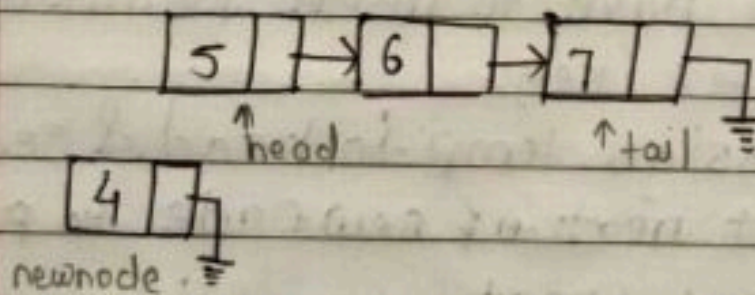 5 6 7
head tail
4
newnode